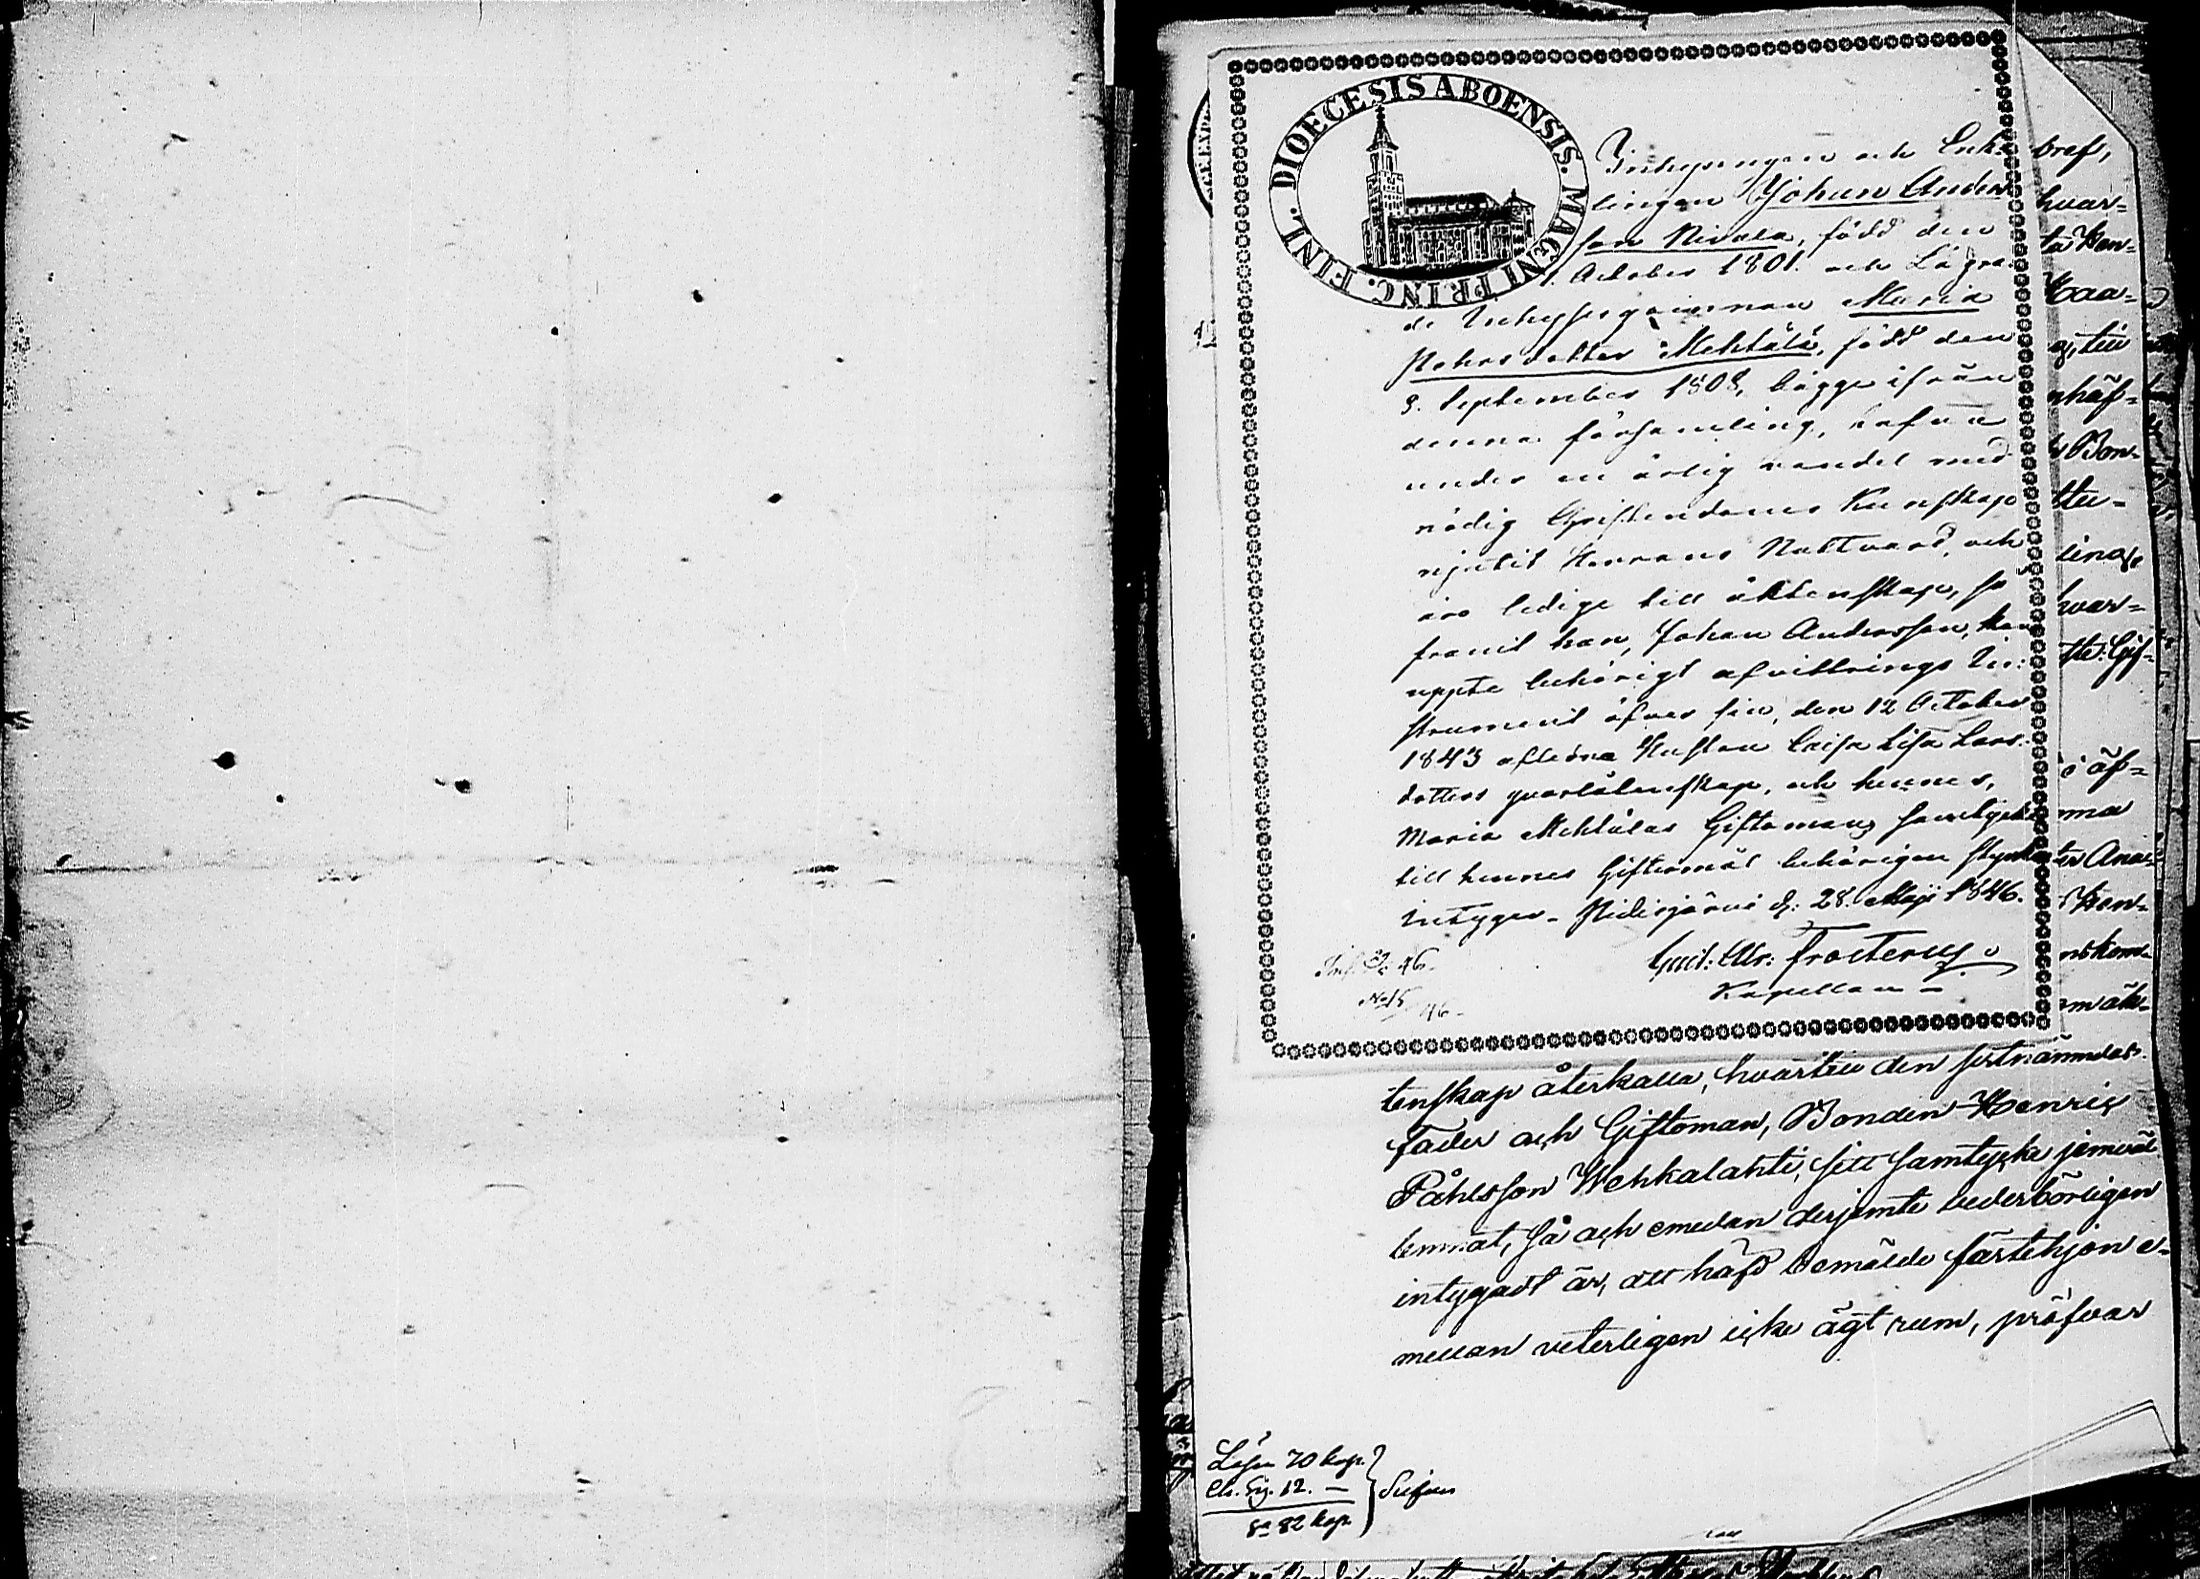 DIOECESIS ABOENSIS. MAGNI PRINC. FINL.
Inhysingen och Enk-
lingen Johan Anders
son Nivala, född den
1. October 1801. och Lägra-
de Inhysesqvinnan Maria
Pehrsdotter Mehtälä, född den
3. September 1808, bägge ifrån
denna församling, hafva
under en ärlig vandel med
nödig Christendoms Kunskap
njutit Herrans Nattvard, och
äro ledige till äktenskap, så
framt han, Johan Andersson, kan
uppte behörigt afvittrings In-
strument öfver sin, den 12 October
1843 aflidna Hustru Caisa Lisa Lars-
dotters qvarlåtenskap, och hennes,
Maria Mehtäläs Giftomans samtycke
till hennes Giftermål behörigen styrkt
intygar. Pidisjärvi d. 28. Maji 1846.
Gust: Ulr: Frosterus
Kapellan
46.
No 15
46.
bref,
hvar=
ta Hen=
Haa=
till
nhäf=
Bon-
tte-
lina,
hvar=
Gif-
äf=
ma
ter Ana
Hen-
nskom-
mäk-
tenskap återkalla, hvartill den sistnämndas
fader och Giftoman, Bonden Henric
Påhlsson Wehkalahti, sitt samtycke jemväl
lemnat, så och emedan derjemte vederbörligen
intygadt är, att häfd bemälde fästehjon e-
mellan veterligen icke ägt rum, pröfvar
Lösen 70 kop.
Ch. Sig. 12. —
Sa 82 kop.